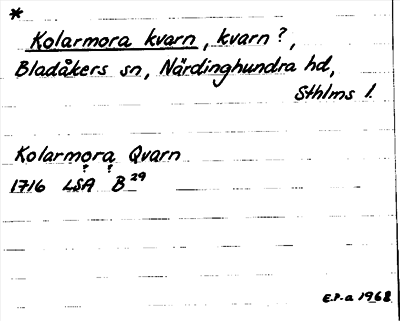 *
Kolarmora kvarn, kvarn?,
Bladåkers sn, Närdinghundra hd,
Sthlms l.
Kolarmora Qvarn
? ?
1716 LSA B 29
E.P-a 1962